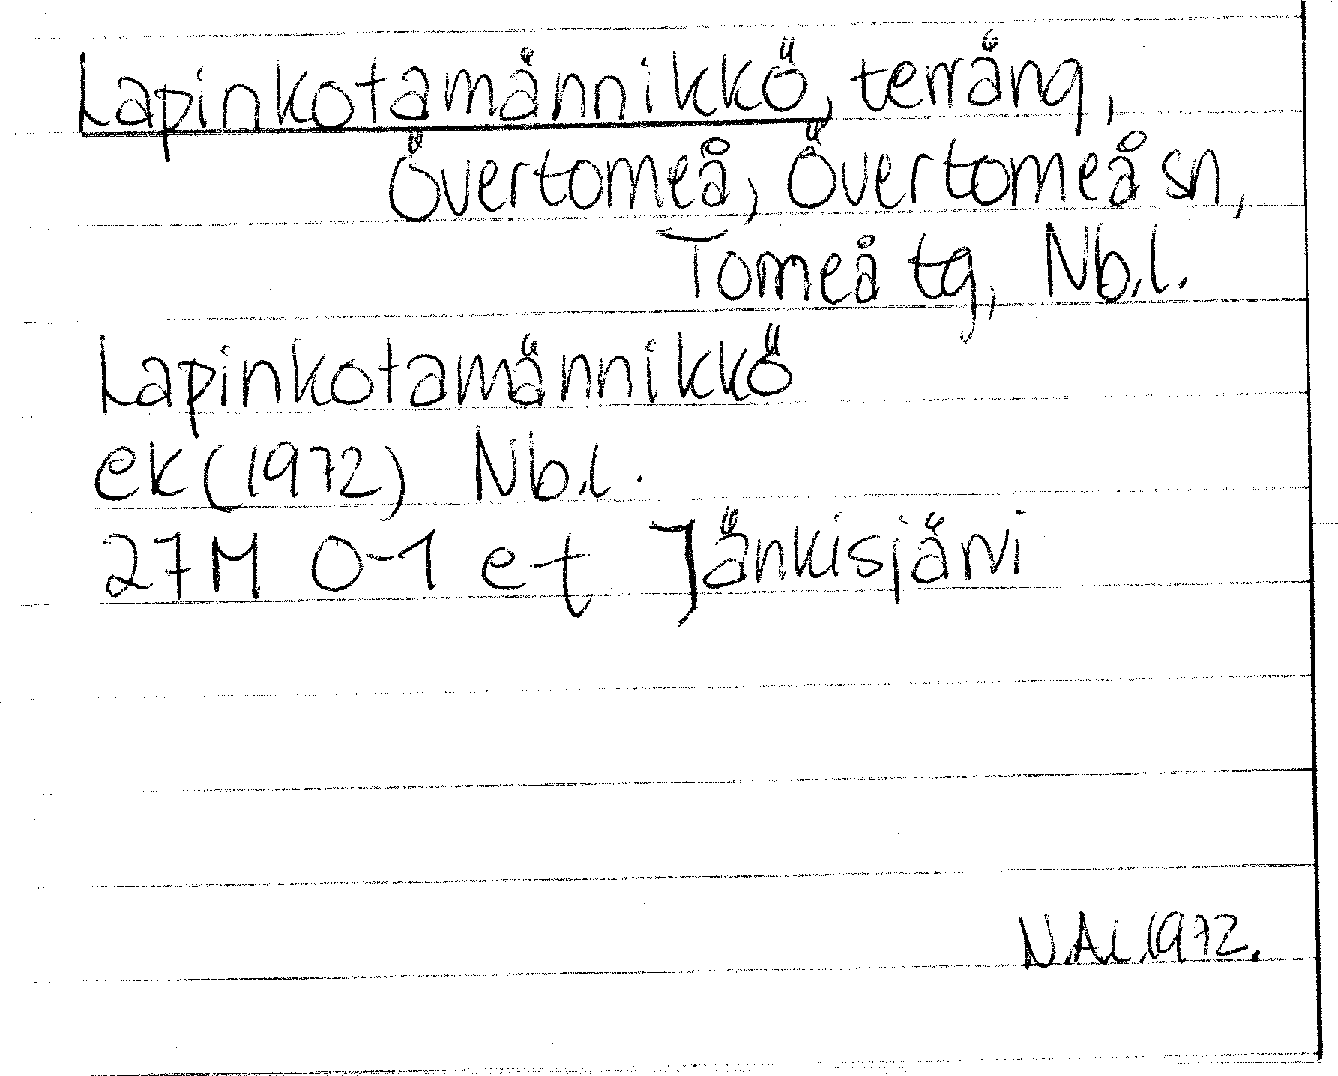 Lapinkotamännikkö, terräng,
Övertorneå, Övertorneå sn,
Torneå tg, Nb.l.
Lapinkotamännikkö
ek (1972) Nb.l.
27M 0-1 e-f Jänkisjärvi
N.A.L. 1972.